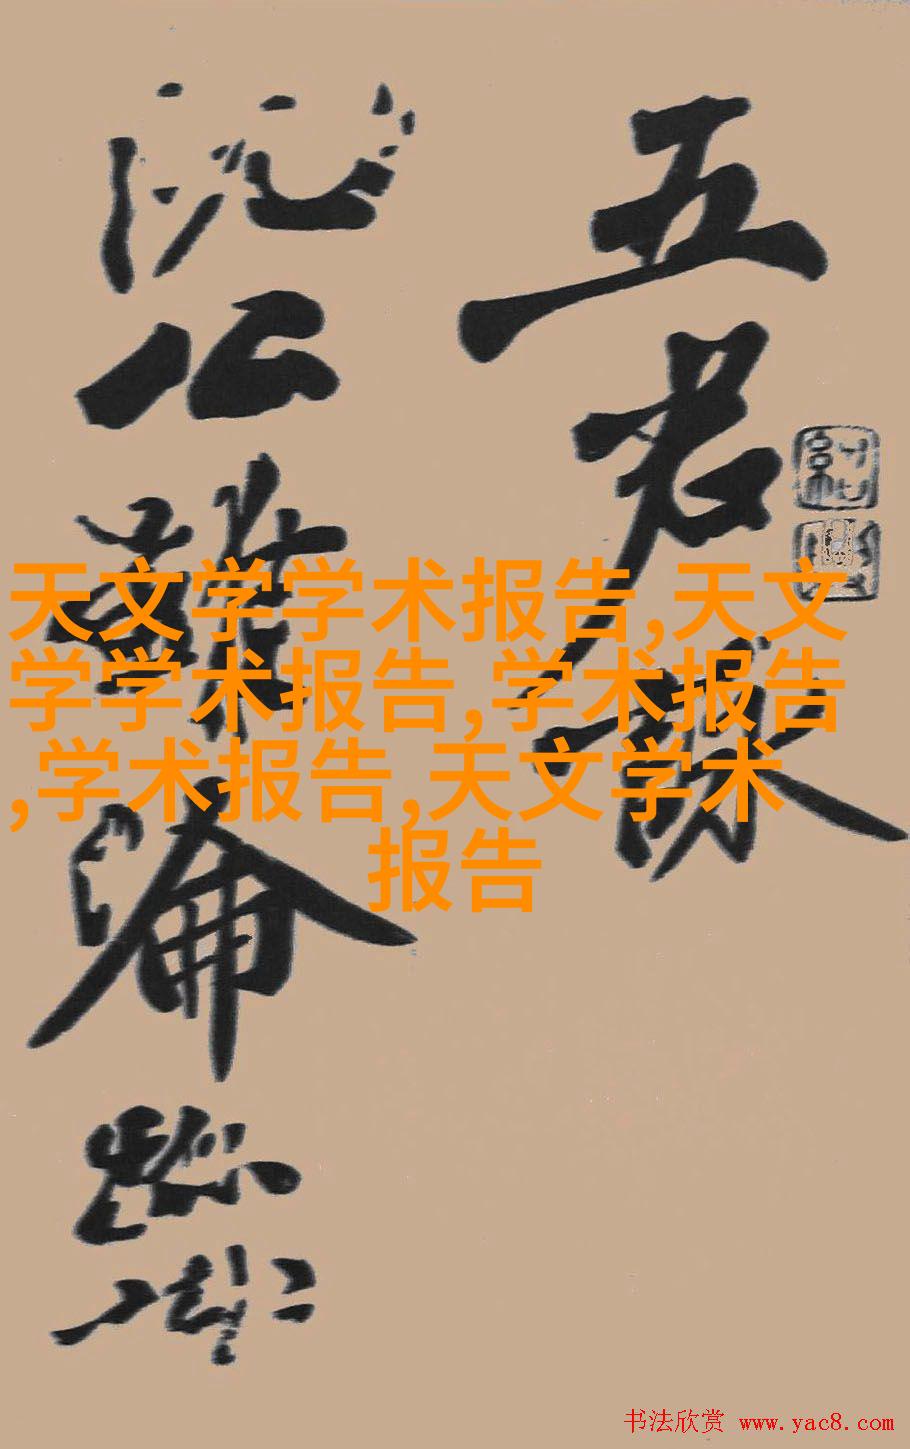 五君詠
阮公雖淪跡
天文学学术报告,天文
学学术报告,学术报告
,学术报告,天文学术
报告
书法欣赏 www.yac8.com